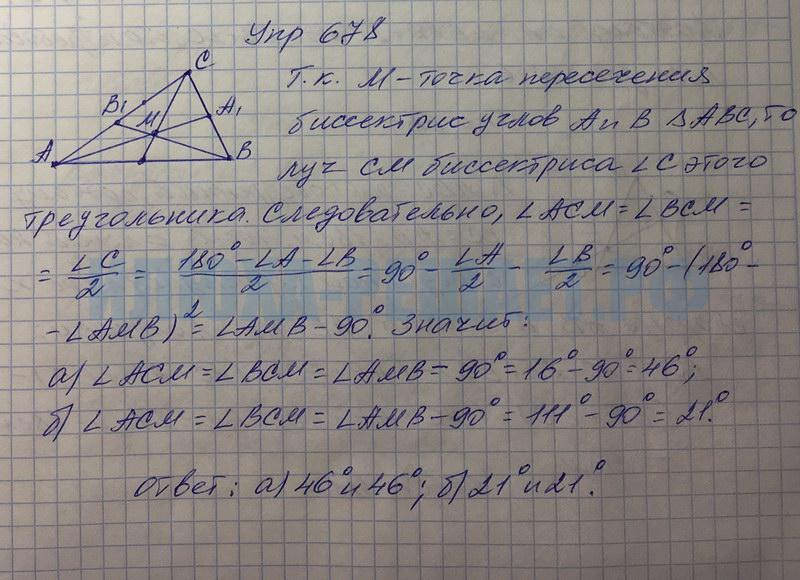 Упр 678
C
B₁
M
A₁
A
B
Т.к. M – точка пересечения
биссектрис углов A и B ΔABC, то
луч CM биссектриса ∠C этого
треугольника. Следовательно, ∠ACM = ∠BCM =
= ∠C/2 = (180° - ∠A - ∠B)/2 = 90° - ∠A/2 - ∠B/2 = 90° - (180° -
- ∠AMB) = ∠AMB - 90°. Значит:
а) ∠ACM = ∠BCM = ∠AMB = 90° = 16° - 90° = 46°;
б) ∠ACM = ∠BCM = ∠AMB - 90° = 111° - 90° = 21°.
Ответ: а) 46° и 46°; б) 21° и 21°.